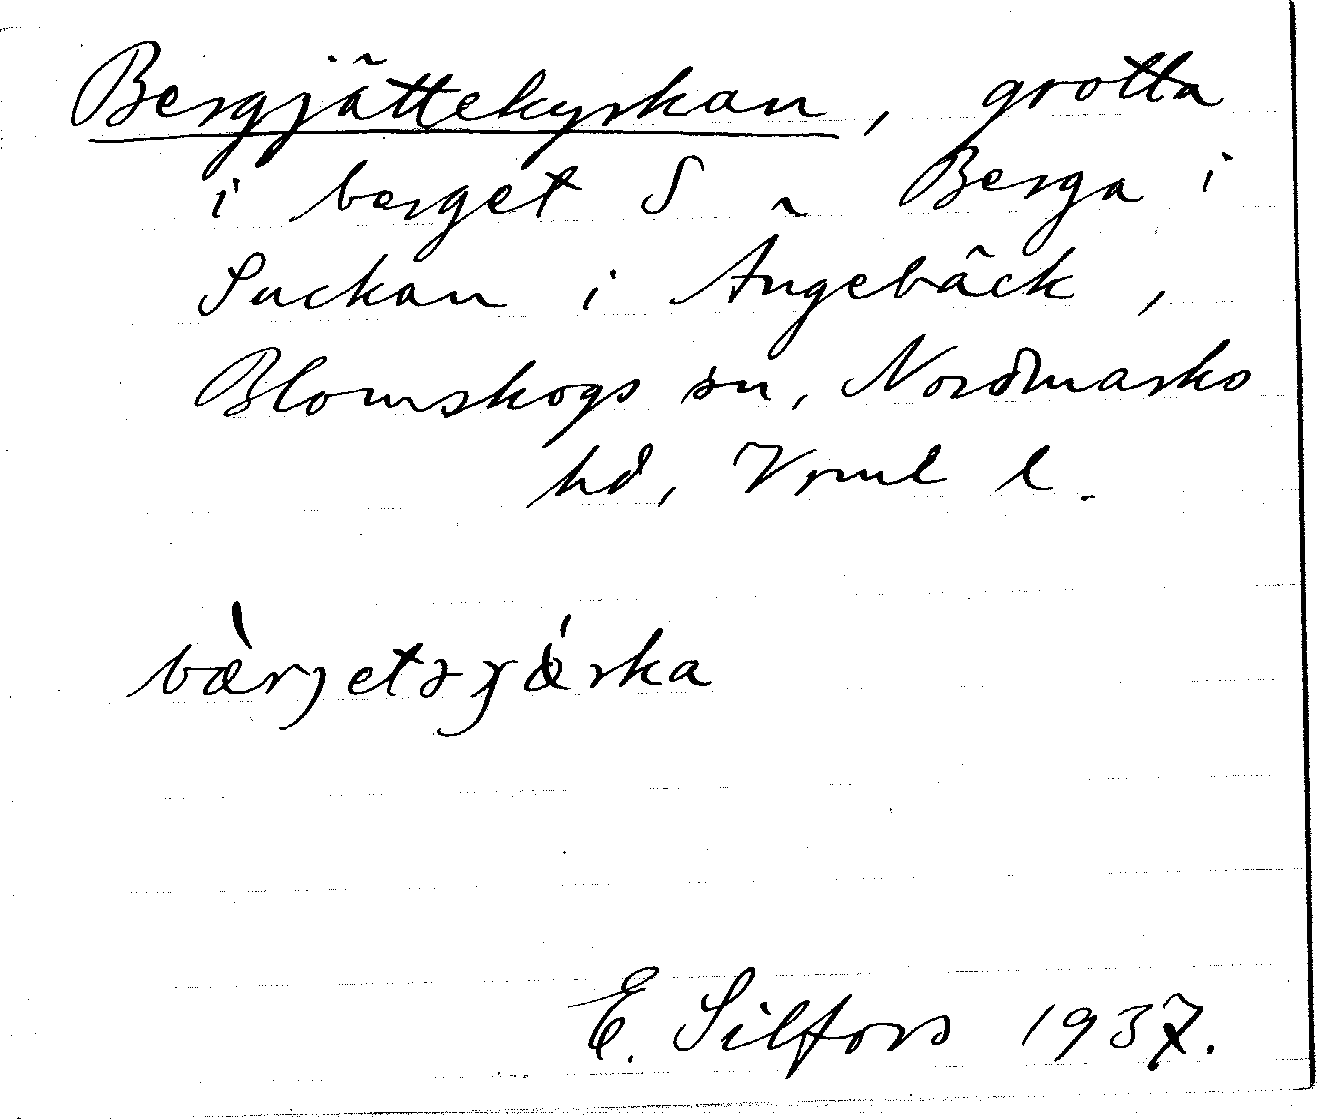 Bergjättekyrkan, grotta
i berget S ~ Berga i
Suckan i Ängebäck,
Blomskogs sn, Nordmarks
hd, Vrml l.
E. Silfors 1937.